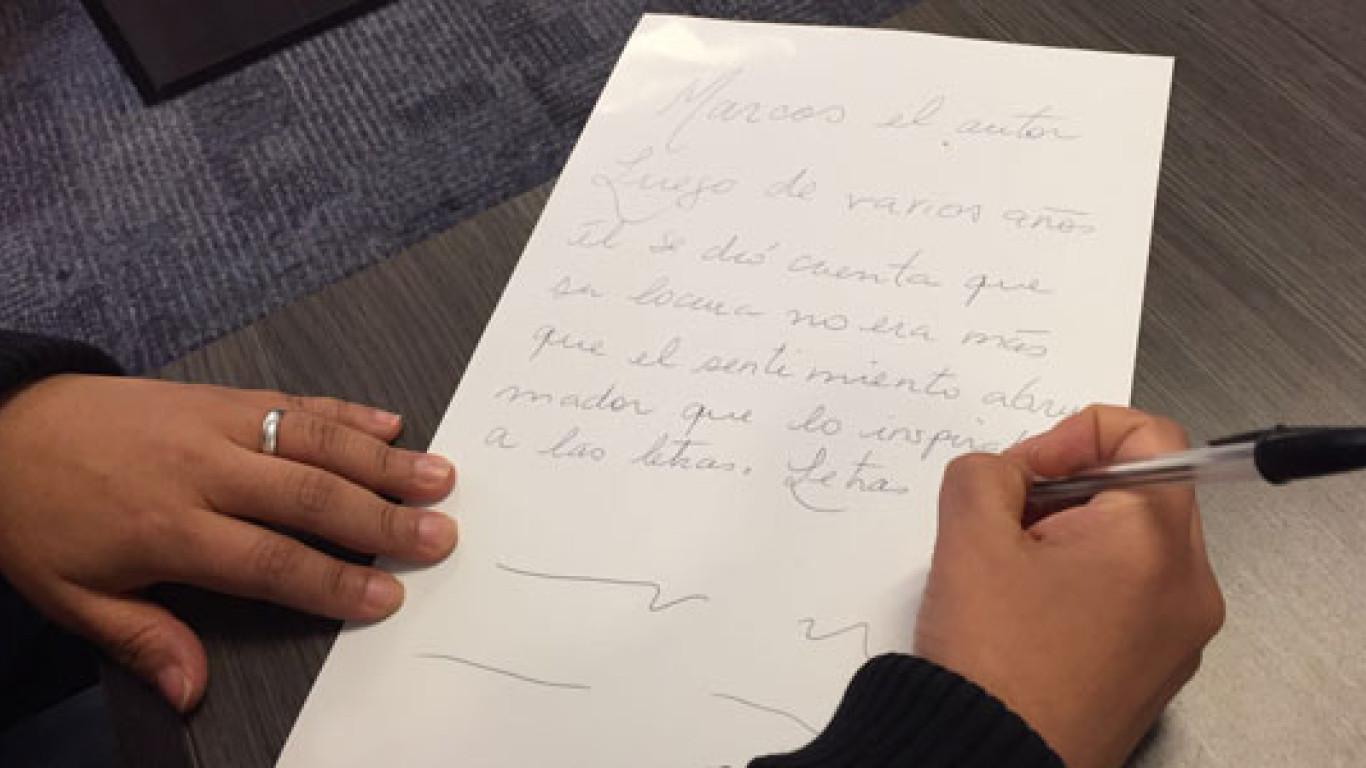 Marcos el autor
Luego de varios años
él se dió cuenta que
su locura no era más
que el sentimiento abru
mador que lo
a las letras. Letras